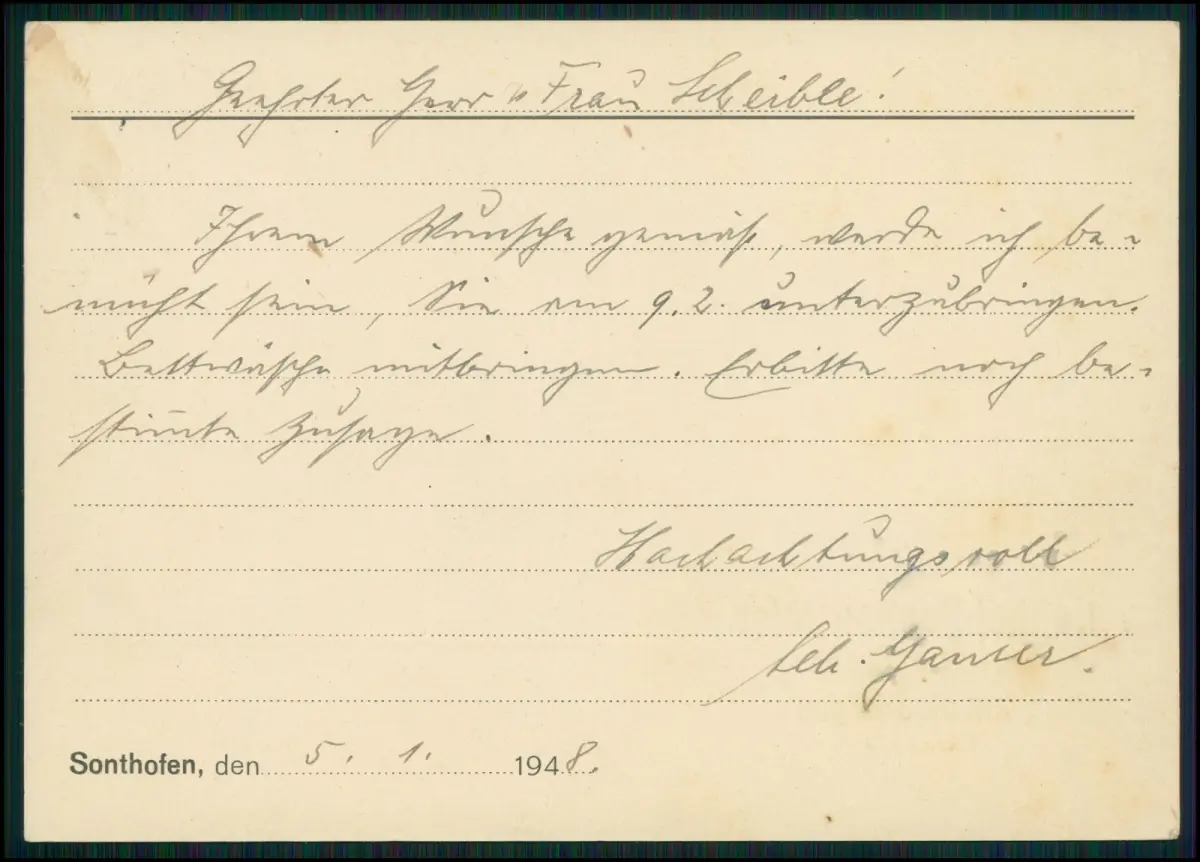 Geehrter Herr u Frau Scheible!
Ihrem Wunsche gemäß, werde ich be-
müht sein, Sie am 9.2. unterzubringen.
Bettwäsche mitbringen. Erbitte noch be-
stim̅te Zusage.
Hochachtungsvoll
Sonthofen, den 5. 1. 1948.